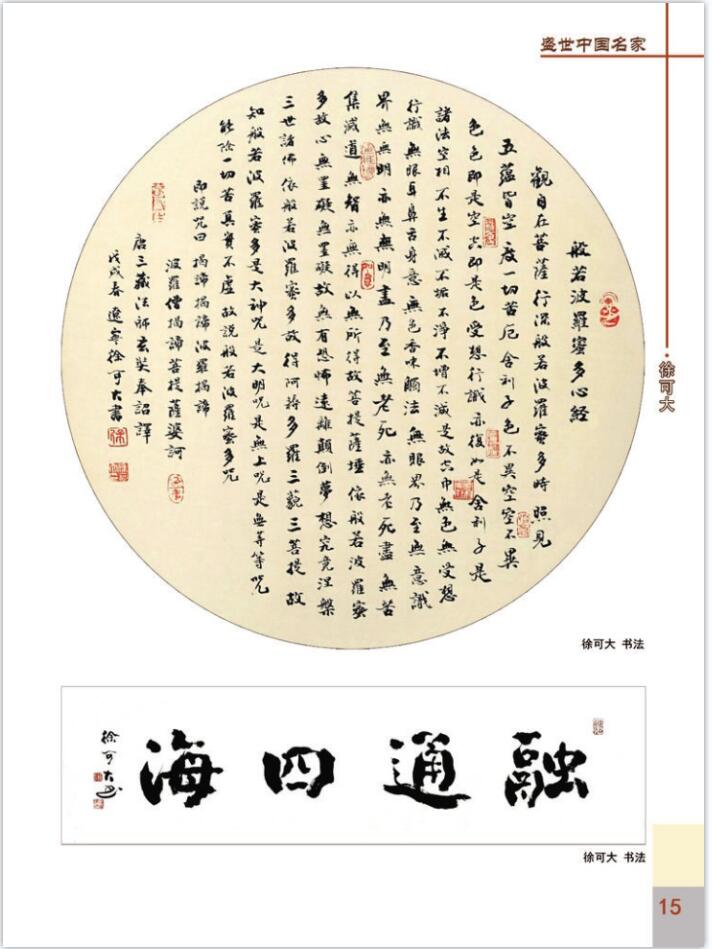 盛世中国名家
·徐可大
般若波羅蜜多心経
觀自在菩薩行深般若波羅蜜多時照見
五蘊皆空度一切苦厄舍利子色不異空空不異
色色即是空空即是色受想行識亦復如是舍利子是
諸法空相不生不滅不垢不淨不增不減是故空中無色無受想
行識無眼耳鼻舌身意無色香味觸法無眼界乃至無意識
界無無明亦無無明盡乃至無老死亦無老死盡無苦
集滅道無智亦無得以無所得故菩提薩埵依般若波羅蜜
多故心無罣礙無罣礙故無有恐怖遠離顛倒夢想究竟涅槃
三世諸佛依般若波羅蜜多故得阿耨多羅三藐三菩提故
知般若波羅蜜多是大神咒是大明咒是無上咒是無等等咒
能除一切苦真實不虛故說般若波羅蜜多咒
即說咒曰揭諦揭諦波羅揭諦
波羅僧揭諦菩提薩婆訶
唐三藏法師玄奘奉詔譯
戊戌春遼寧徐可大書
徐可大 书法
融通四海
徐可大书
徐可大 书法
15